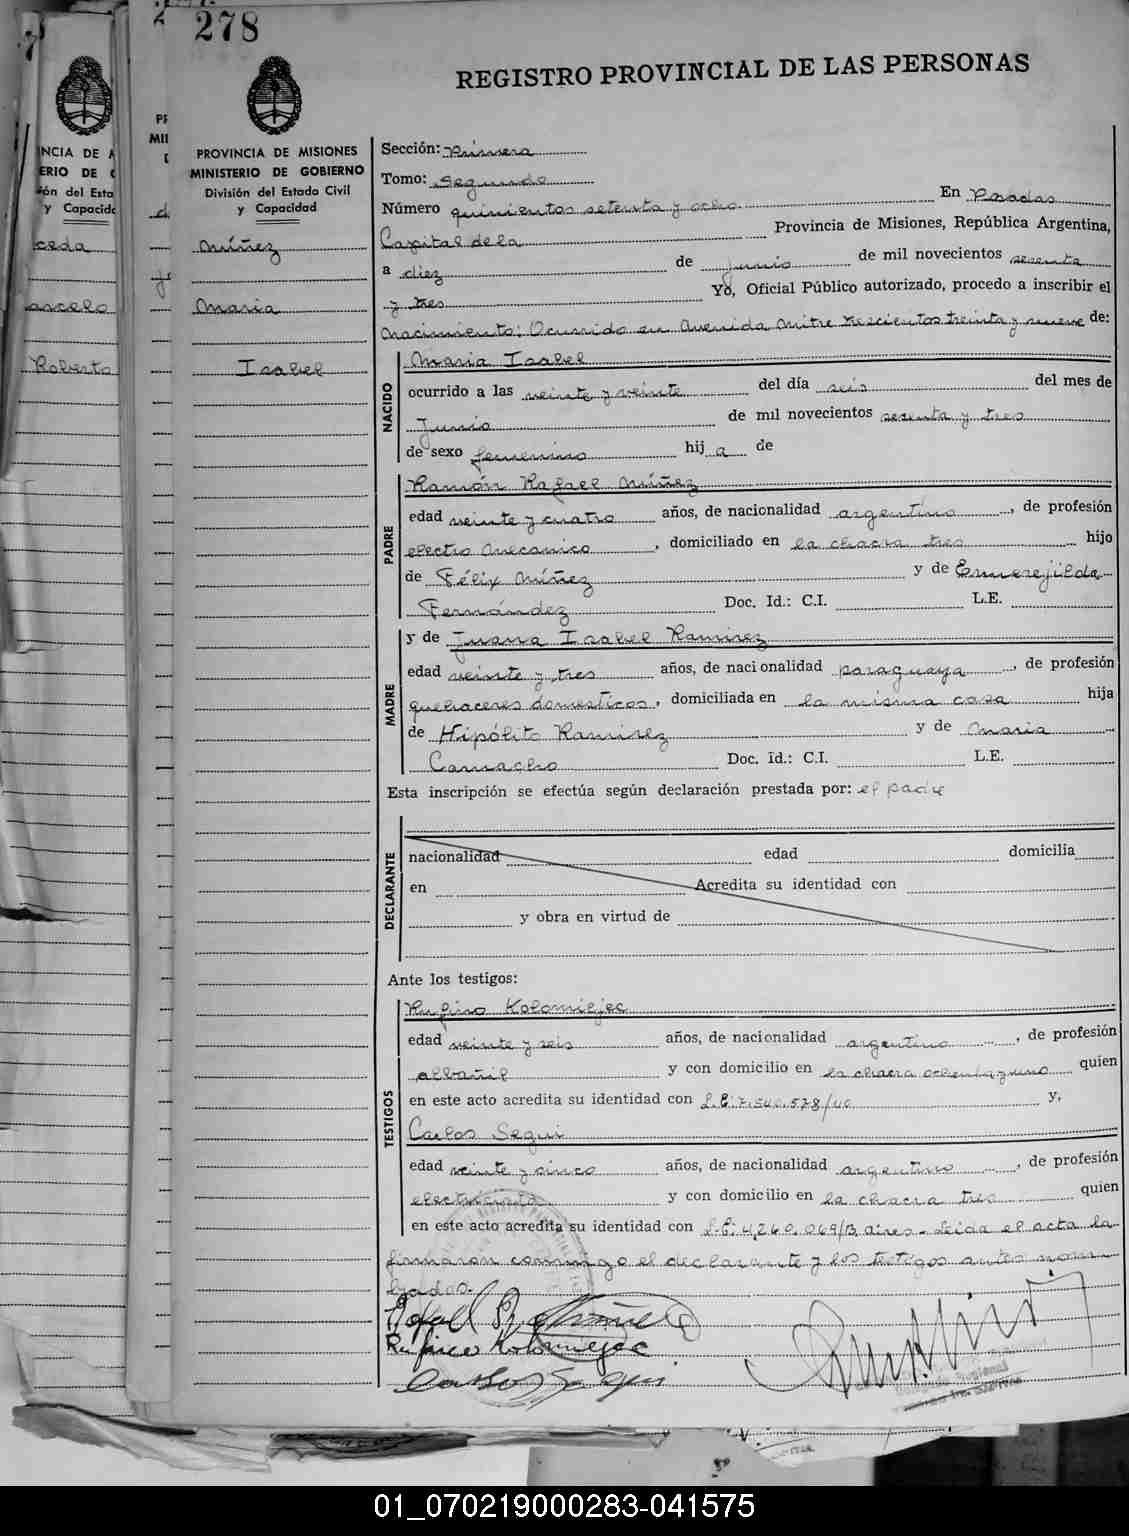 278
REGISTRO PROVINCIAL DE LAS PERSONAS
NCIA DE
ERIO DE
ón del Esta
y Capacid
ceda
arcelo
Roberto
PROVINCIA DE MISIONES
MINISTERIO DE GOBIERNO
División del Estado Civil
y Capacidad
Núñez
Maria
Isabel
Sección: Primera
Tomo: Segundo
Número quinientos setenta y ocho En Posadas
Capital de la Provincia de Misiones, República Argentina,
a diez de Junio de mil novecientos sesenta
y tres Yo, Oficial Público autorizado, procedo a inscribir el
nacimiento: Ocurrido en Avenida Mitre trescientos treinta y nueve de:
NACIDO
Maria Isabel
ocurrido a las veinte y veinte del día seis del mes de
Junio de mil novecientos sesenta y tres
de sexo femenino hij a de
PADRE
Ramón Rafael Núñez
edad veinte y cuatro años, de nacionalidad argentino, de profesión
electro mecanico, domiciliado en la chacra tres hijo
de Félix Núñez y de Emerejilda
Fernández Doc. Id.: C.I. L.E.
MADRE
y de Juana Isabel Ramirez
edad veinte y tres años, de nacionalidad paraguaya, de profesión
quehaceres domesticos, domiciliada en la misma casa hija
de Hipólito Ramirez y de Maria
Camacho Doc. Id.: C.I. L.E.
Esta inscripción se efectúa según declaración prestada por: el padre
DECLARANTE
nacionalidad edad domicilia
en Acredita su identidad con
y obra en virtud de
Ante los testigos:
TESTIGOS
Rufino Kolomiejec
edad veinte y seis años, de nacionalidad argentino, de profesión
albañil y con domicilio en la chacra ochenta y uno quien
en este acto acredita su identidad con L.E: 7.540.578/40 y,
Carlos Segui
edad veinte y cinco años, de nacionalidad argentino, de profesión
electricista y con domicilio en la chacra tres quien
en este acto acredita su identidad con L.E: 4,260.069/B, aires - Leida el acta la
firmaron conmigo el declarante y los testigos antes nom-
brados.
Rufino Kolomiejec
Carlos Segui
01_070219000283-041575